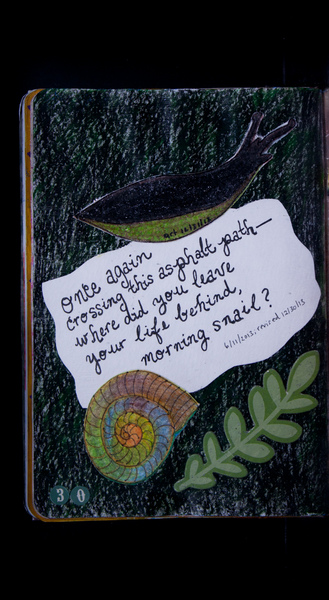 Once again
crossing this asphalt path—
where did you leave
your life behind,
morning snail?
6/11/2013, revised 12/30/13
30